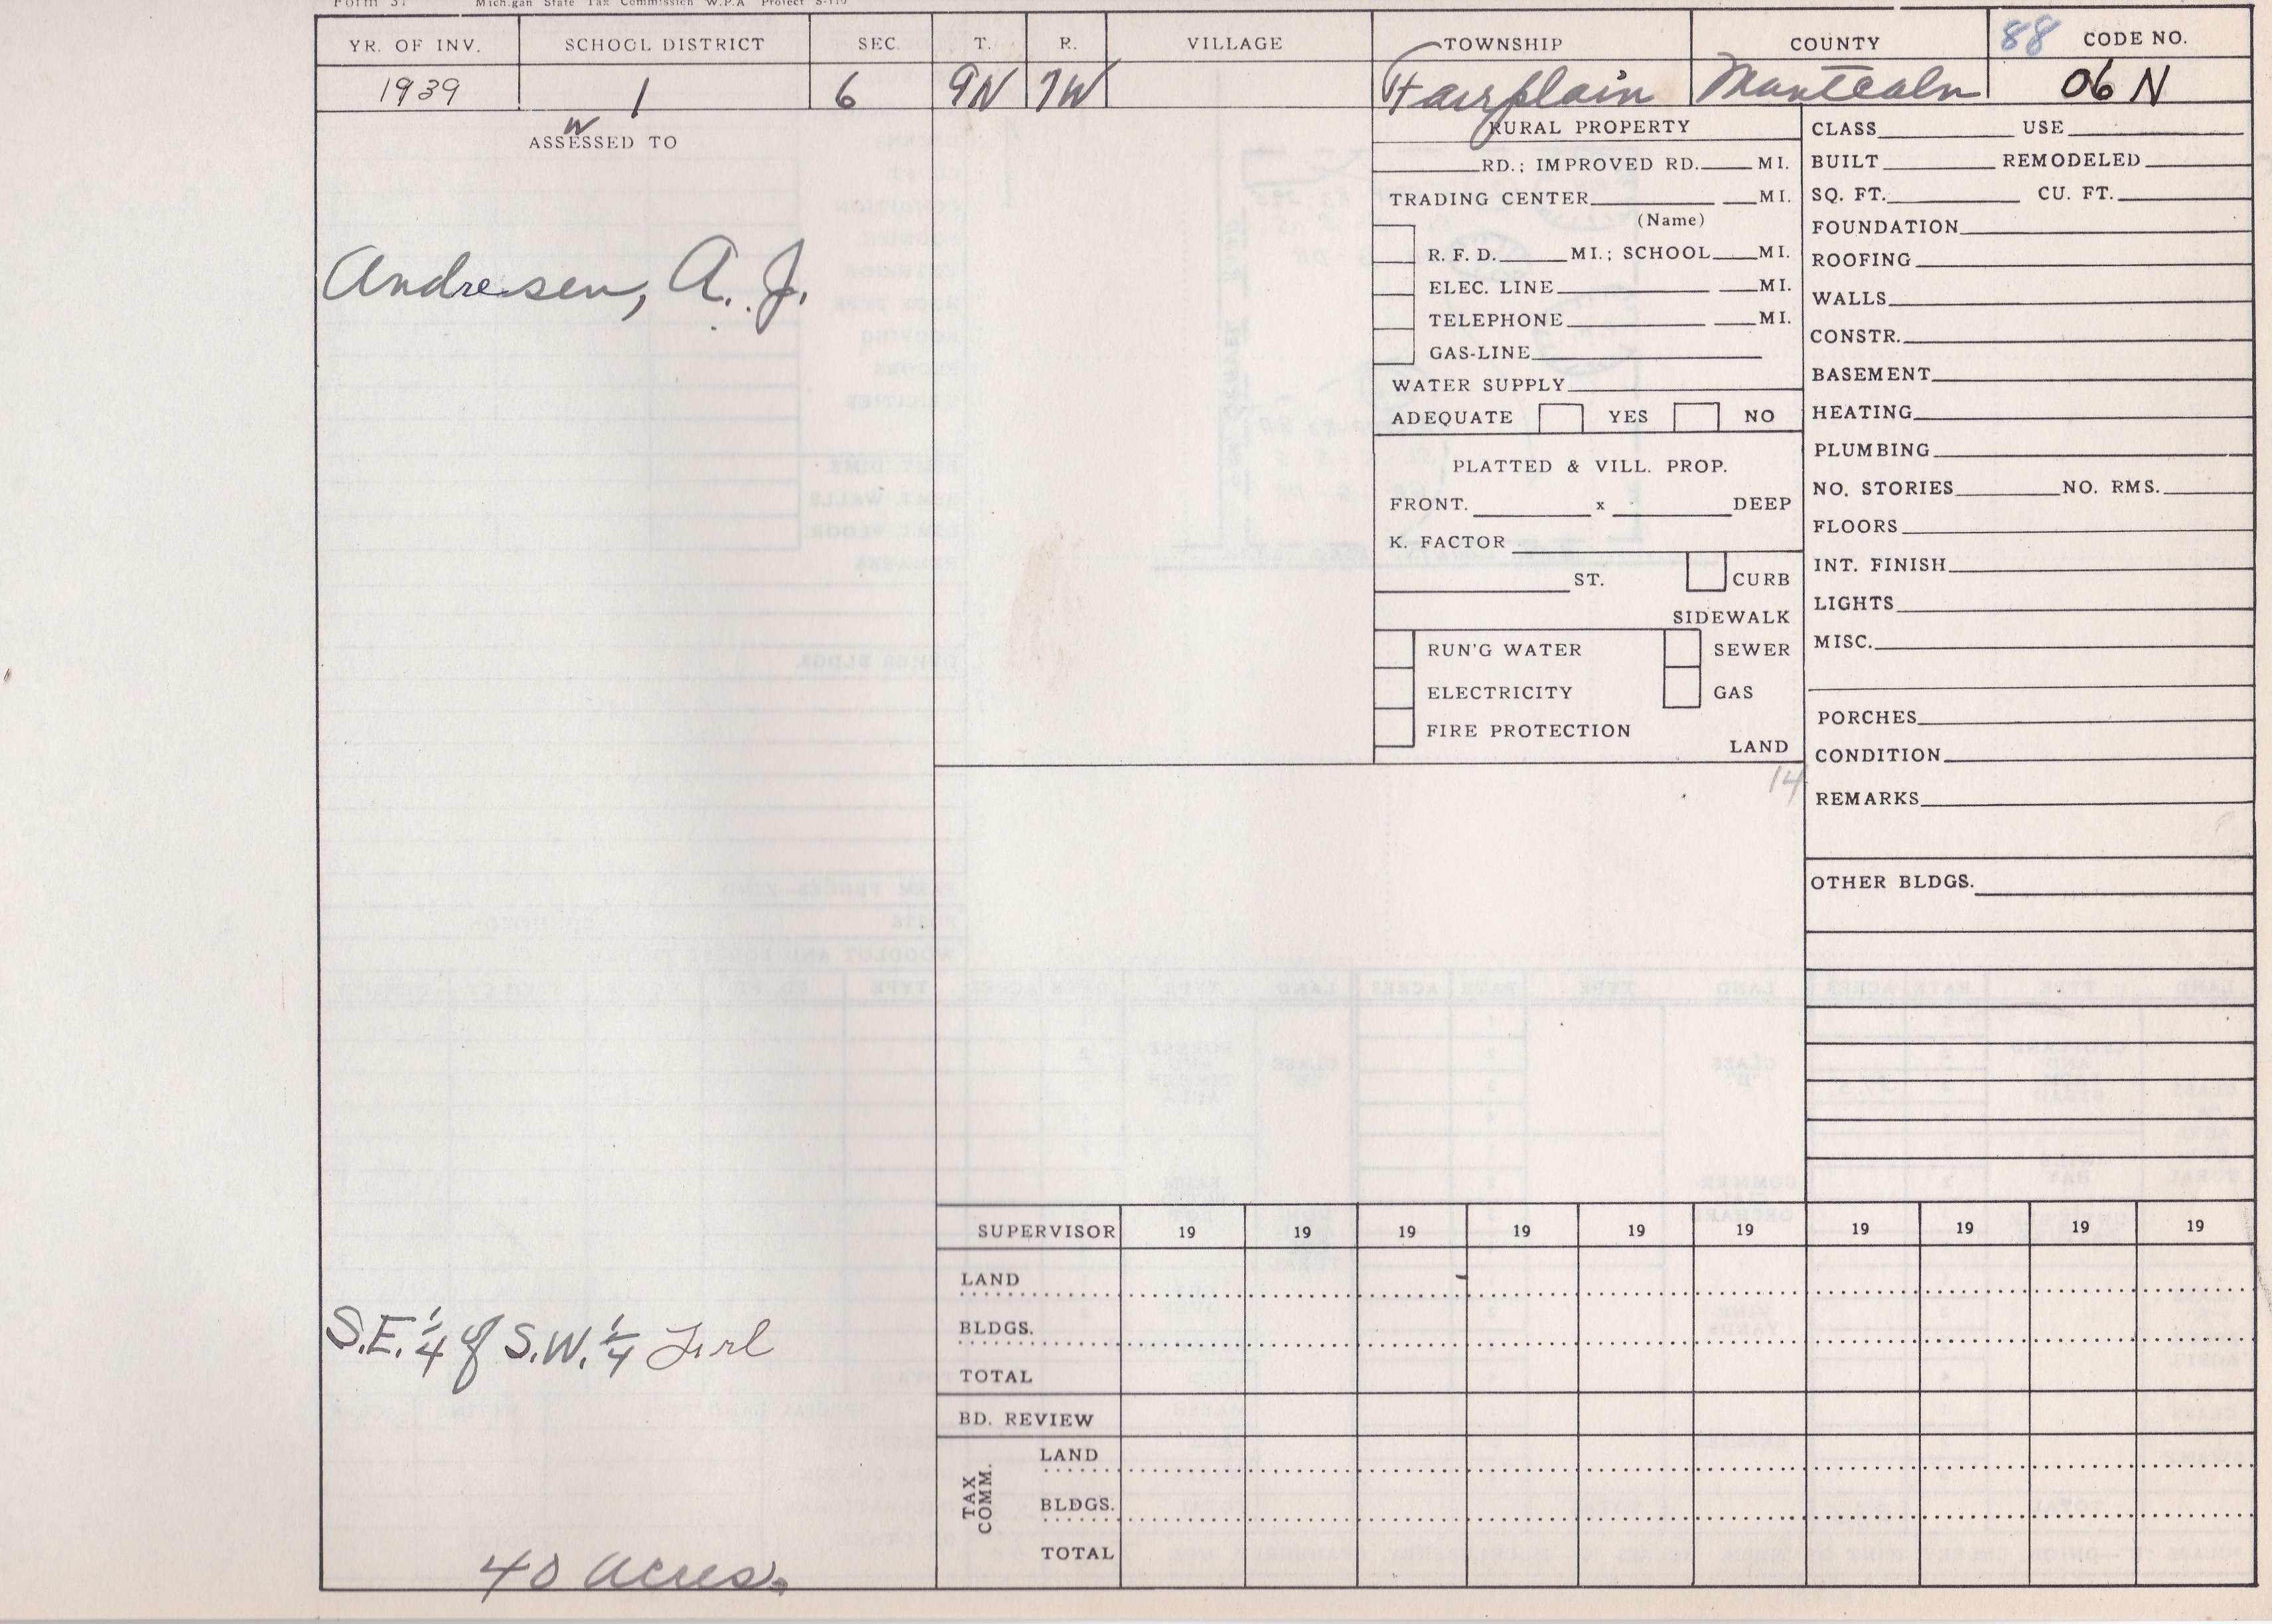 Form 3. Michigan State Tax Commission W.P.A Project S-110
YR. OF INV. SCHOOL DISTRICT SEC. T. R. VILLAGE TOWNSHIP COUNTY 88 CODE NO.
1939 1 6 9N 7W Fairplain Montcalm 06 N
W
ASSESSED TO
Andresen, A. J.
S.E. 1/4 of S.W. 1/4 Frl
40 acres.
RURAL PROPERTY
RD.; IMPROVED RD. MI.
TRADING CENTER MI.
(Name)
R. F. D. MI.; SCHOOL MI.
ELEC. LINE MI.
TELEPHONE MI.
GAS-LINE
WATER SUPPLY
ADEQUATE YES NO
PLATTED & VILL. PROP.
FRONT. x DEEP
K. FACTOR
ST. CURB
SIDEWALK
RUN'G WATER SEWER
ELECTRICITY GAS
FIRE PROTECTION
LAND
14
CLASS USE
BUILT REMODELED
SQ. FT. CU. FT.
FOUNDATION
ROOFING
WALLS
CONSTR.
BASEMENT
HEATING
PLUMBING
NO. STORIES NO. RMS.
FLOORS
INT. FINISH
LIGHTS
MISC.
PORCHES
CONDITION
REMARKS
OTHER BLDGS.
SUPERVISOR 19 19 19 19 19 19 19 19 19 19
LAND
BLDGS.
TOTAL
BD. REVIEW
TAX COMM.
LAND
BLDGS.
TOTAL